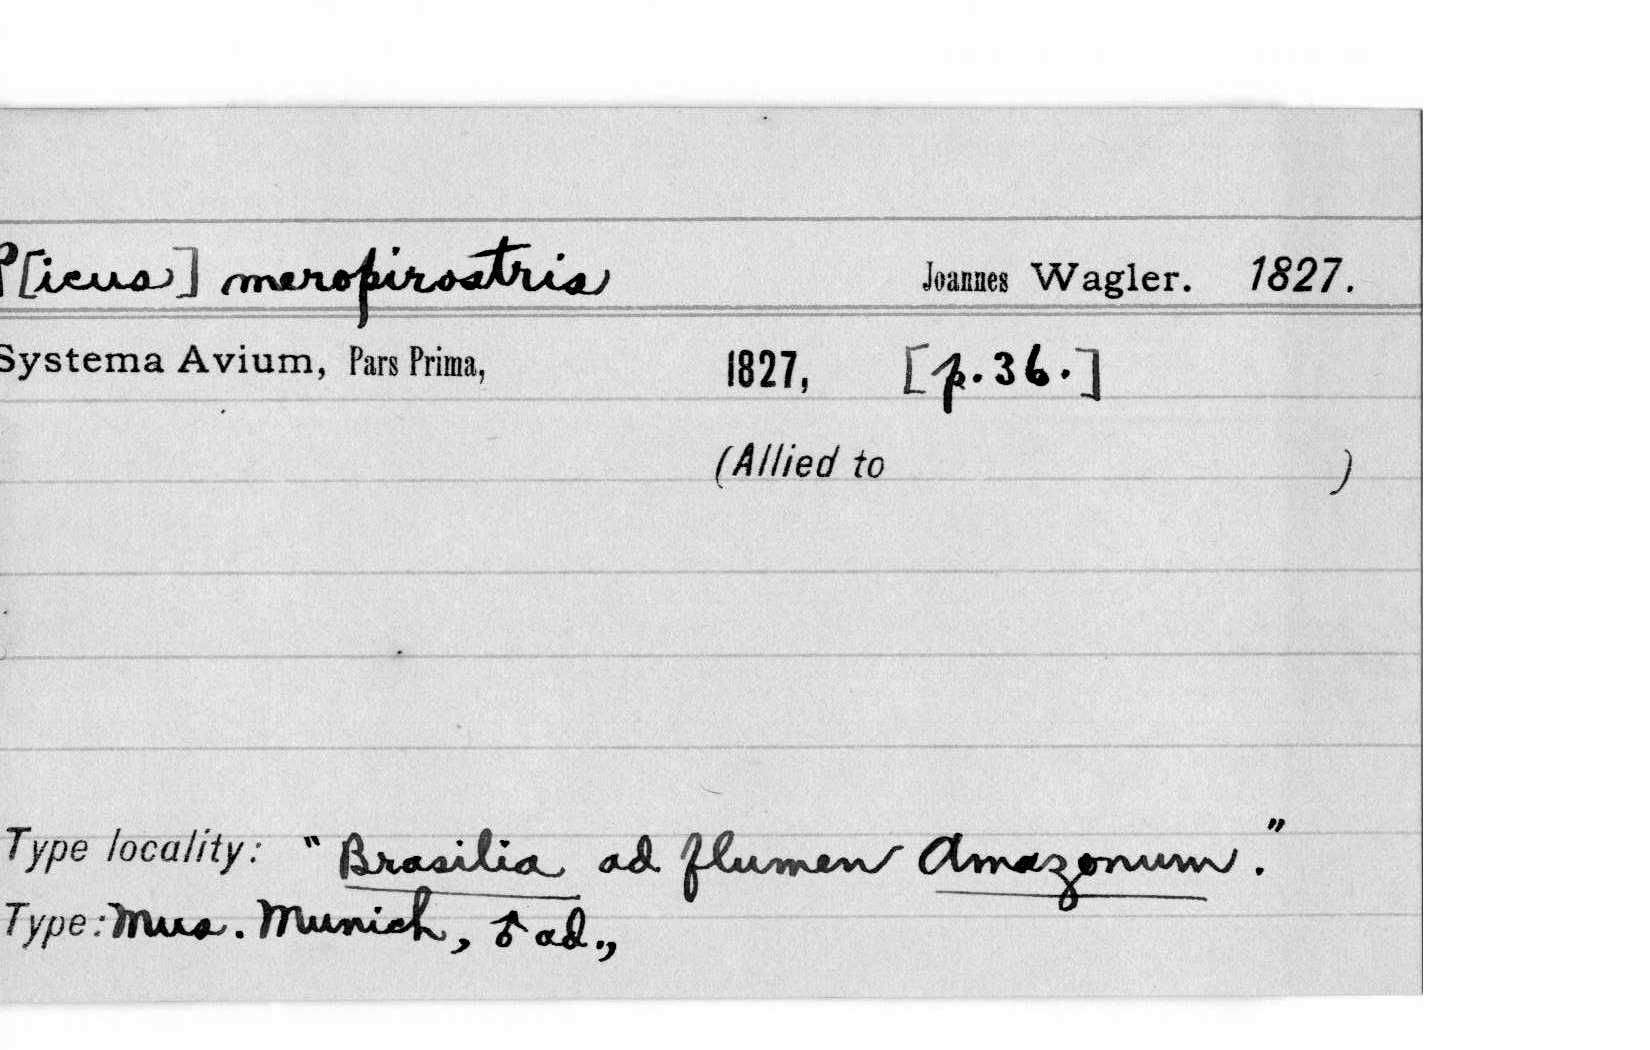 P[icus] meropirostris Joannes Wagler. 1827.
Systema Avium, Pars Prima, 1827, [p.36.]
(Allied to )
Type locality: "Brasilia ad flumen Amazonum."
Type: Mus. Munich, ♂ ad.,